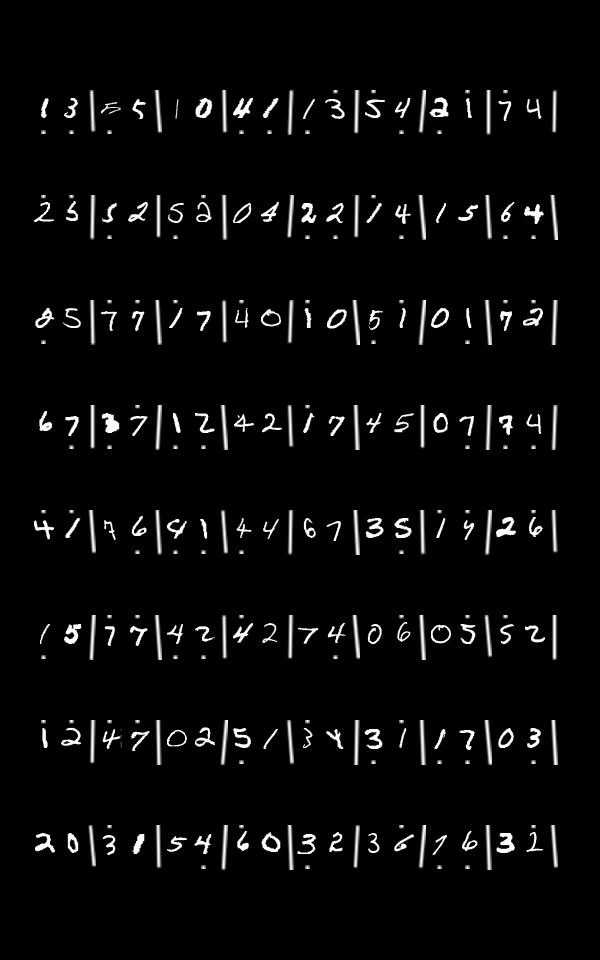 1 3 | 5 5 | 1 0 | 4 1 | 1 3 | 5 4 | 2 1 | 7 4 |
2 3 | 5 2 | 5 2 | 0 4 | 2 2 | 1 4 | 1 5 | 6 4 |
2 5 | 7 7 | 1 7 | 4 0 | 1 0 | 5 1 | 0 1 | 7 2 |
6 7 | 3 7 | 1 2 | 4 2 | 1 7 | 4 5 | 0 7 | 7 4 |
4 1 | 7 6 | 4 1 | 4 4 | 6 7 | 3 5 | 1 4 | 2 6 |
1 5 | 7 7 | 4 2 | 4 2 | 7 4 | 0 6 | 0 5 | 5 2 |
1 2 | 4 7 | 0 2 | 5 1 | 3 4 | 3 1 | 1 7 | 0 3 |
2 0 | 3 1 | 5 4 | 6 0 | 3 2 | 3 6 | 7 6 | 3 2 |